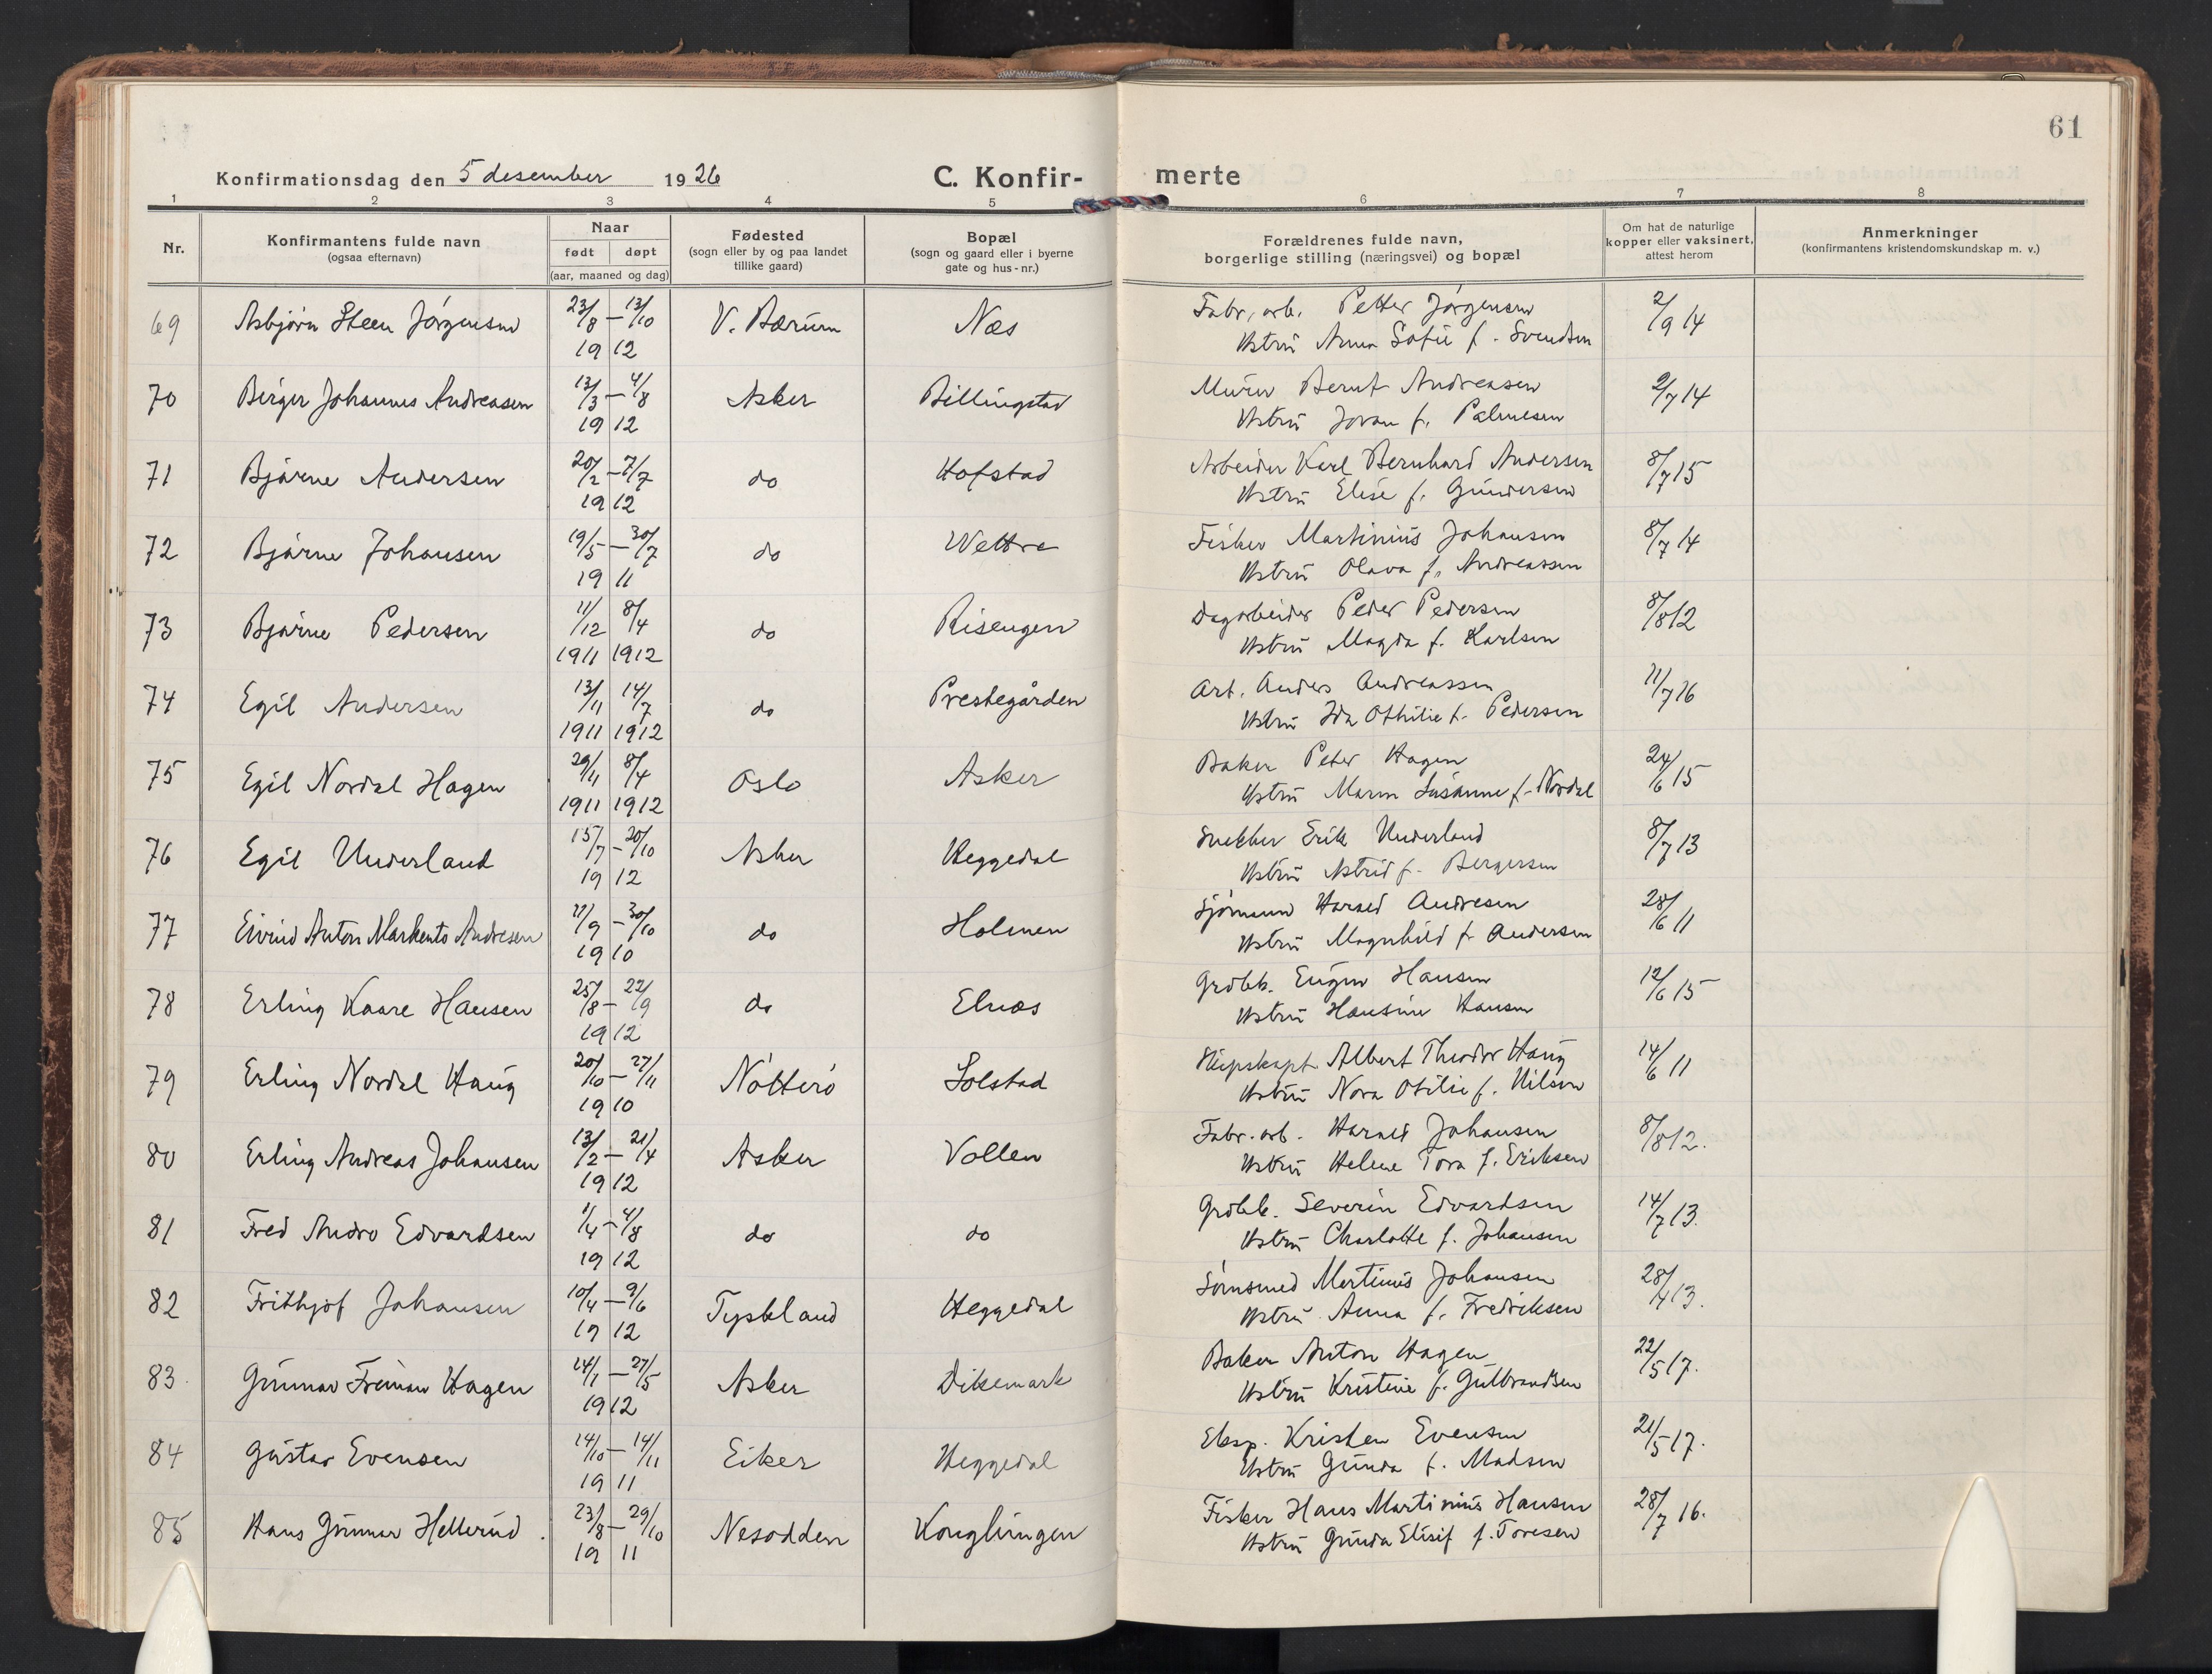 61
Konfirmationsdag den 5 desember 1926 C. Konfir- merte
1 2 3 4 5 6 7 8
Nr.
Konfirmantens fulde navn
(ogsaa efternavn)
Naar
født døpt
(aar, maaned og dag)
Fødested
(sogn eller by og paa landet
tillike gaard)
Bopæl
(sogn og gaard eller i byerne
gate og hus-nr.)
Forældrenes fulde navn,
borgerlige stilling (næringsvei) og bopæl
Om hat de naturlige
kopper eller vaksinert,
attest herom
Anmerkninger
(konfirmantens kristendomskundskap m. v.)
69 Asbjørn Steen Jørgensen 23/8 – 13/10 V. Bærum Næs Fabr. arb. Petter Jørgensen 2/9 14
1912 Hstru Anna Sofie f. Svendsen
70 Birger Johannes Andreasen 13/3 – 4/8 Asker Billingstad Murer Bernt Andreasen 2/7 14
1912 Hstru Jovan f. Palmesen
71 Bjarne Andersen 20/2 – 7/7 do Hofstad Arbeider Karl Bernhard Andersen 8/7 15
1912 Hstru Elise f. Gundersen
72 Bjarne Johansen 19/5 – 30/7 do Wettre Fisker Martinius Johansen 8/7 14
1911 Hstru Olava f. Andreassen
73 Bjarne Pedersen 11/12 8/4 do Risengen Dagarbeider Peder Pedersen 8/8 12
1911 1912 Hstru Magda f. Karlsen
74 Egil Andersen 13/11 14/7 do Prestegården Arb. Anders Andreassen 11/7 16
1911 1912 Hstru Ida Othilie f. Pedersen
75 Egil Nordal Hagen 29/11 8/4 Oslo Asker Baker Peter Hagen 24/6 15
1911 1912 Hstru Maren Susanne f. Nordal
76 Egil Underland 15/7 – 20/10 Asker Heggedal Snekker Erik Underland 8/7 13
1912 Hstru Astrid f. Bergersen
77 Eivind Anton Markento Andresen 11/9 – 30/10 do Holmen Sjømann Harald Andresen 28/6 11
1910 Hstru Magnhild f. Andersen
78 Erling Kaare Hansen 25/8 – 22/9 do Elnæs Grdbk. Eugen Hansen 12/6 15
1912 Hstru Hansine Hansen
79 Erling Nordal Haug 20/10 – 27/11 Nøtterø Solstad Skipskapt. Albert Theodor Haug 14/6 11
1910 Hstru Nora Otilie f. Nilsen
80 Erling Andreas Johansen 13/2 – 21/4 Asker Vollen Fabr. arb. Harald Johansen 8/8 12.
1912 Hstru Helene Tora f. Eriksen
81 Fred Andro Edvardsen 1/4 – 4/8 do do Grdbk. Severin Edvardsen 14/7 13.
1912 Hstru Charlotte f. Johansen
82 Frithjof Johansen 10/4 – 9/6 Tyskland Heggedal Martinius Johansen 28/4 13.
1912 Hstru Anna f. Fredriksen
83. Gunnar Freiman Hagen 14/1 – 27/5 Asker Dikemark Baker Anton Hagen 22/5 17.
1912 Hstru Kristine f. Gulbrandsen
84 Gustav Evensen 14/10 – 14/11 Eiker Heggedal Eksp. Kristen Evensen 21/5 17.
1911 Hstru Gunda f. Madsen
85 Hans Gunnar Hellerud. 23/8 – 29/10 Nesodden Konglungen Fisker Hans Martinius Hansen 28/7 16.
1911 Hstru Gunda Elisif f. Toresen